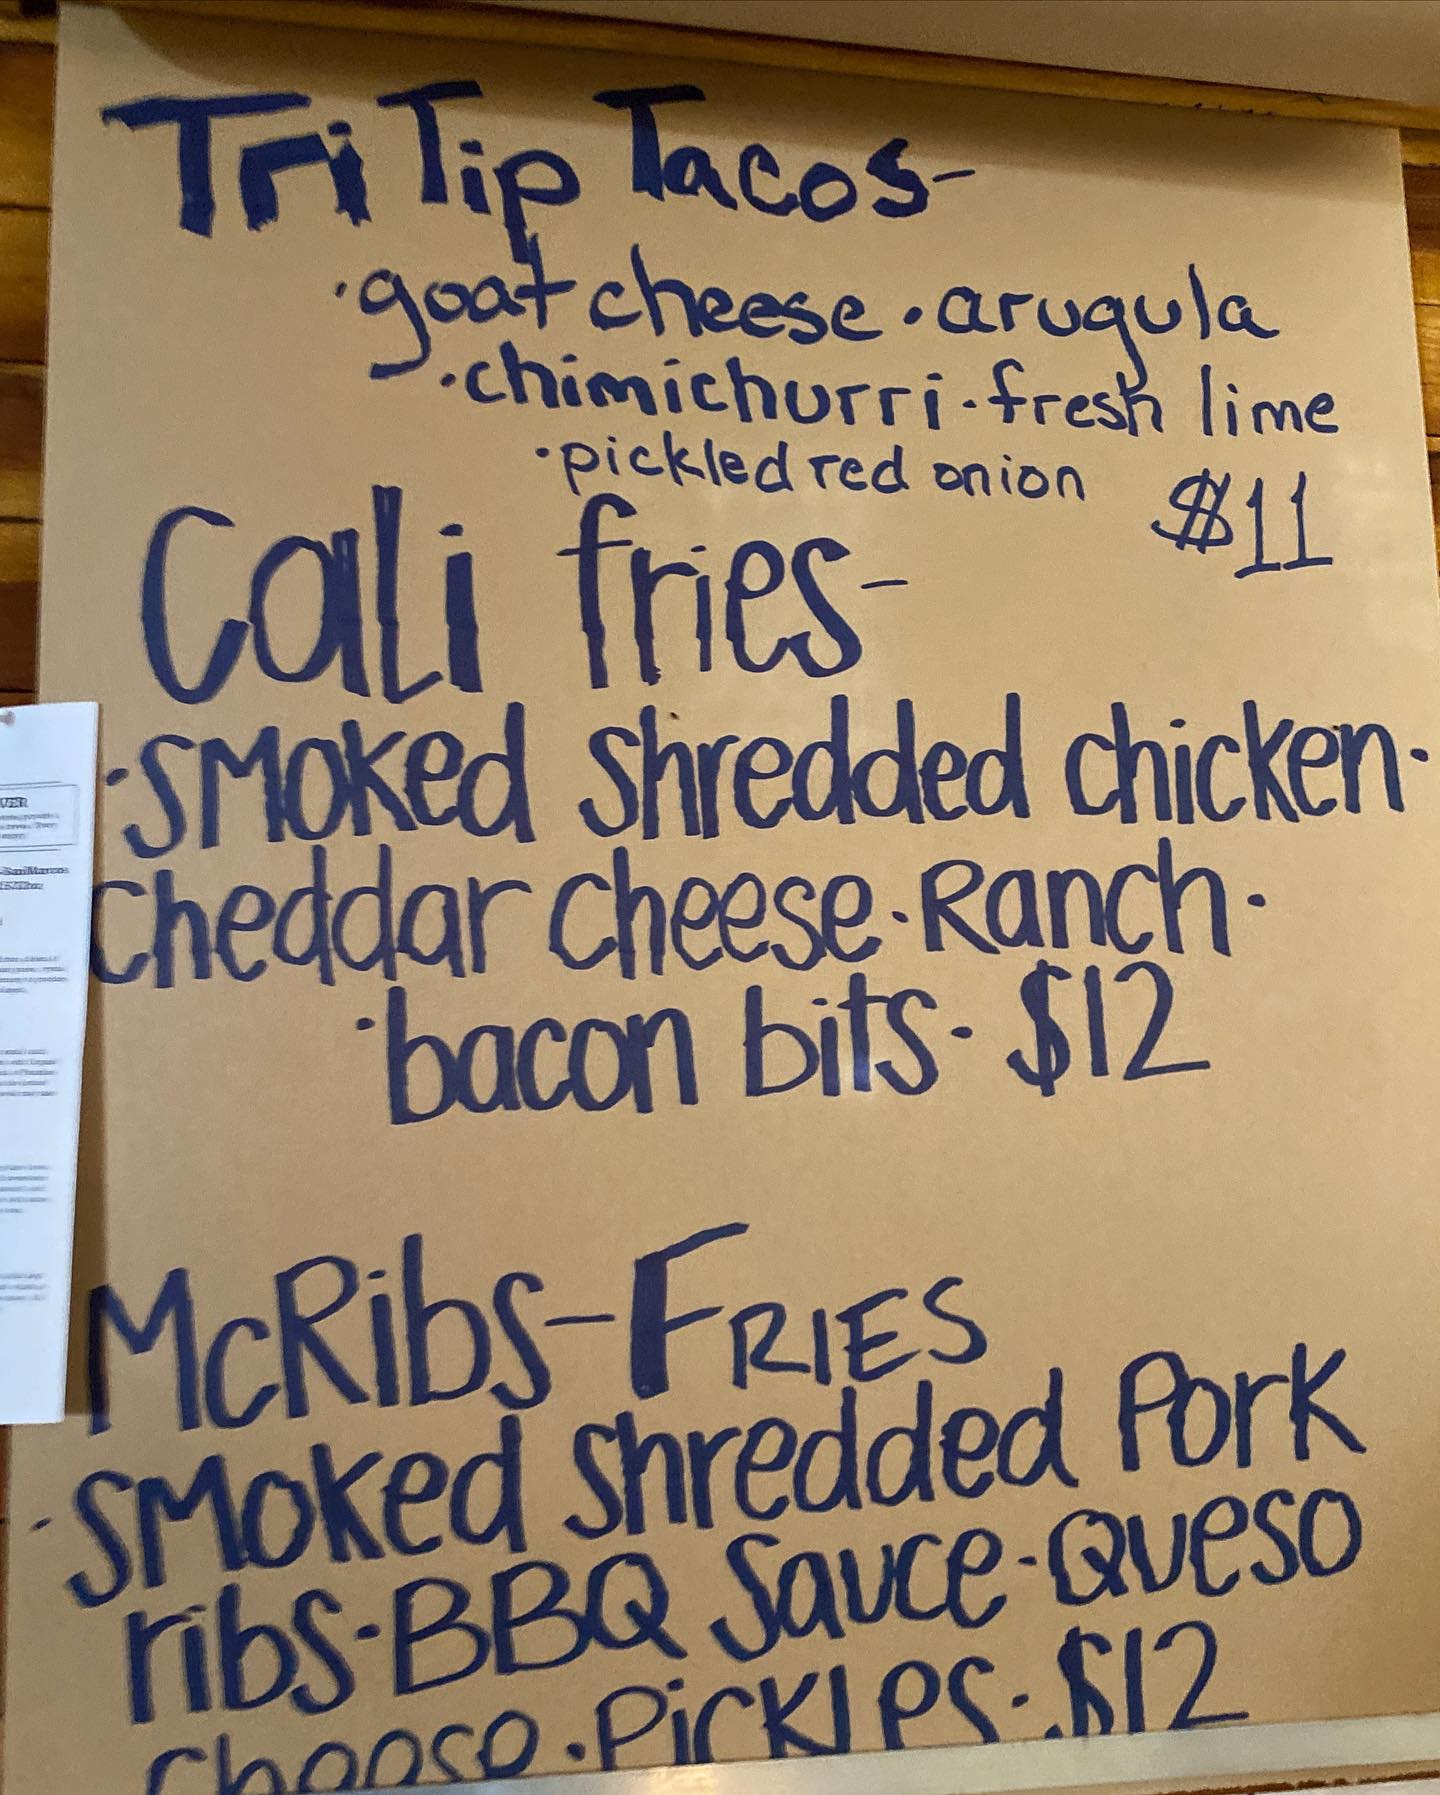 Tri Tip Tacos-
·goat cheese·arugula
·chimichurri·fresh lime
·pickled red onion $11
Cali fries-
·smoked shredded chicken·
cheddar cheese·Ranch·
·bacon bits· $12
McRibs-FRIES
·smoked shredded Pork
ribs·BBQ Sauce·Queso
cheese·Pickles·$12
VER
SanMarcos